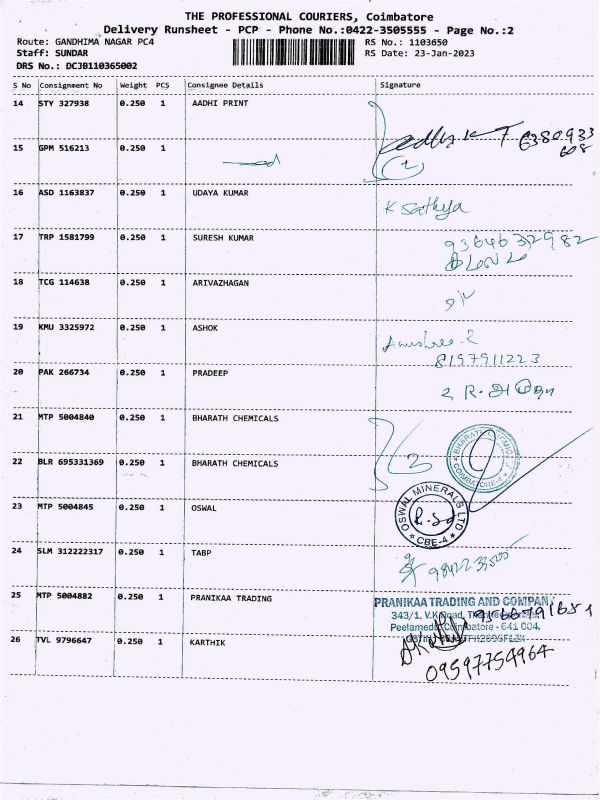 THE PROFESSIONAL COURIERS, Coimbatore
Delivery Runsheet - PCP - Phone No.:0422-3505555 - Page No.:2
Route: GANDHIMA NAGAR PC4 RS No.: 1103650
Staff: SUNDAR RS Date: 23-Jan-2023
DRS No.: DCJB110365002
S No Consignment No Weight PCS Consignee Details Signature
14 STY 327938 0.250 1 AADHI PRINT
6380933
608
15 GPM 516213 0.250 1
16 ASD 1163837 0.250 1 UDAYA KUMAR
K Sathya
17 TRP 1581799 0.250 1 SURESH KUMAR
18 TCG 114638 0.250 1 ARIVAZHAGAN
19 KMU 3325972 0.250 1 ASHOK
8157911223
20 PAK 266734 0.250 1 PRADEEP
21 MTP 5004840 0.250 1 BHARATH CHEMICALS
22 BLR 695331369 0.250 1 BHARATH CHEMICALS
23 MTP 5004845 0.250 1 OSWAL
OSWAL MINERALS LTD
CBE-4
24 SLM 312222317 0.250 1 TABP
25 MTP 5004882 0.250 1 PRANIKAA TRADING
PRANIKAA TRADING AND COMPANY
9566791651
343/1, V.K. Road,
Peelamedu, Coimbatore - 641 004.
26 TVL 9796647 0.250 1 KARTHIK
09597754964